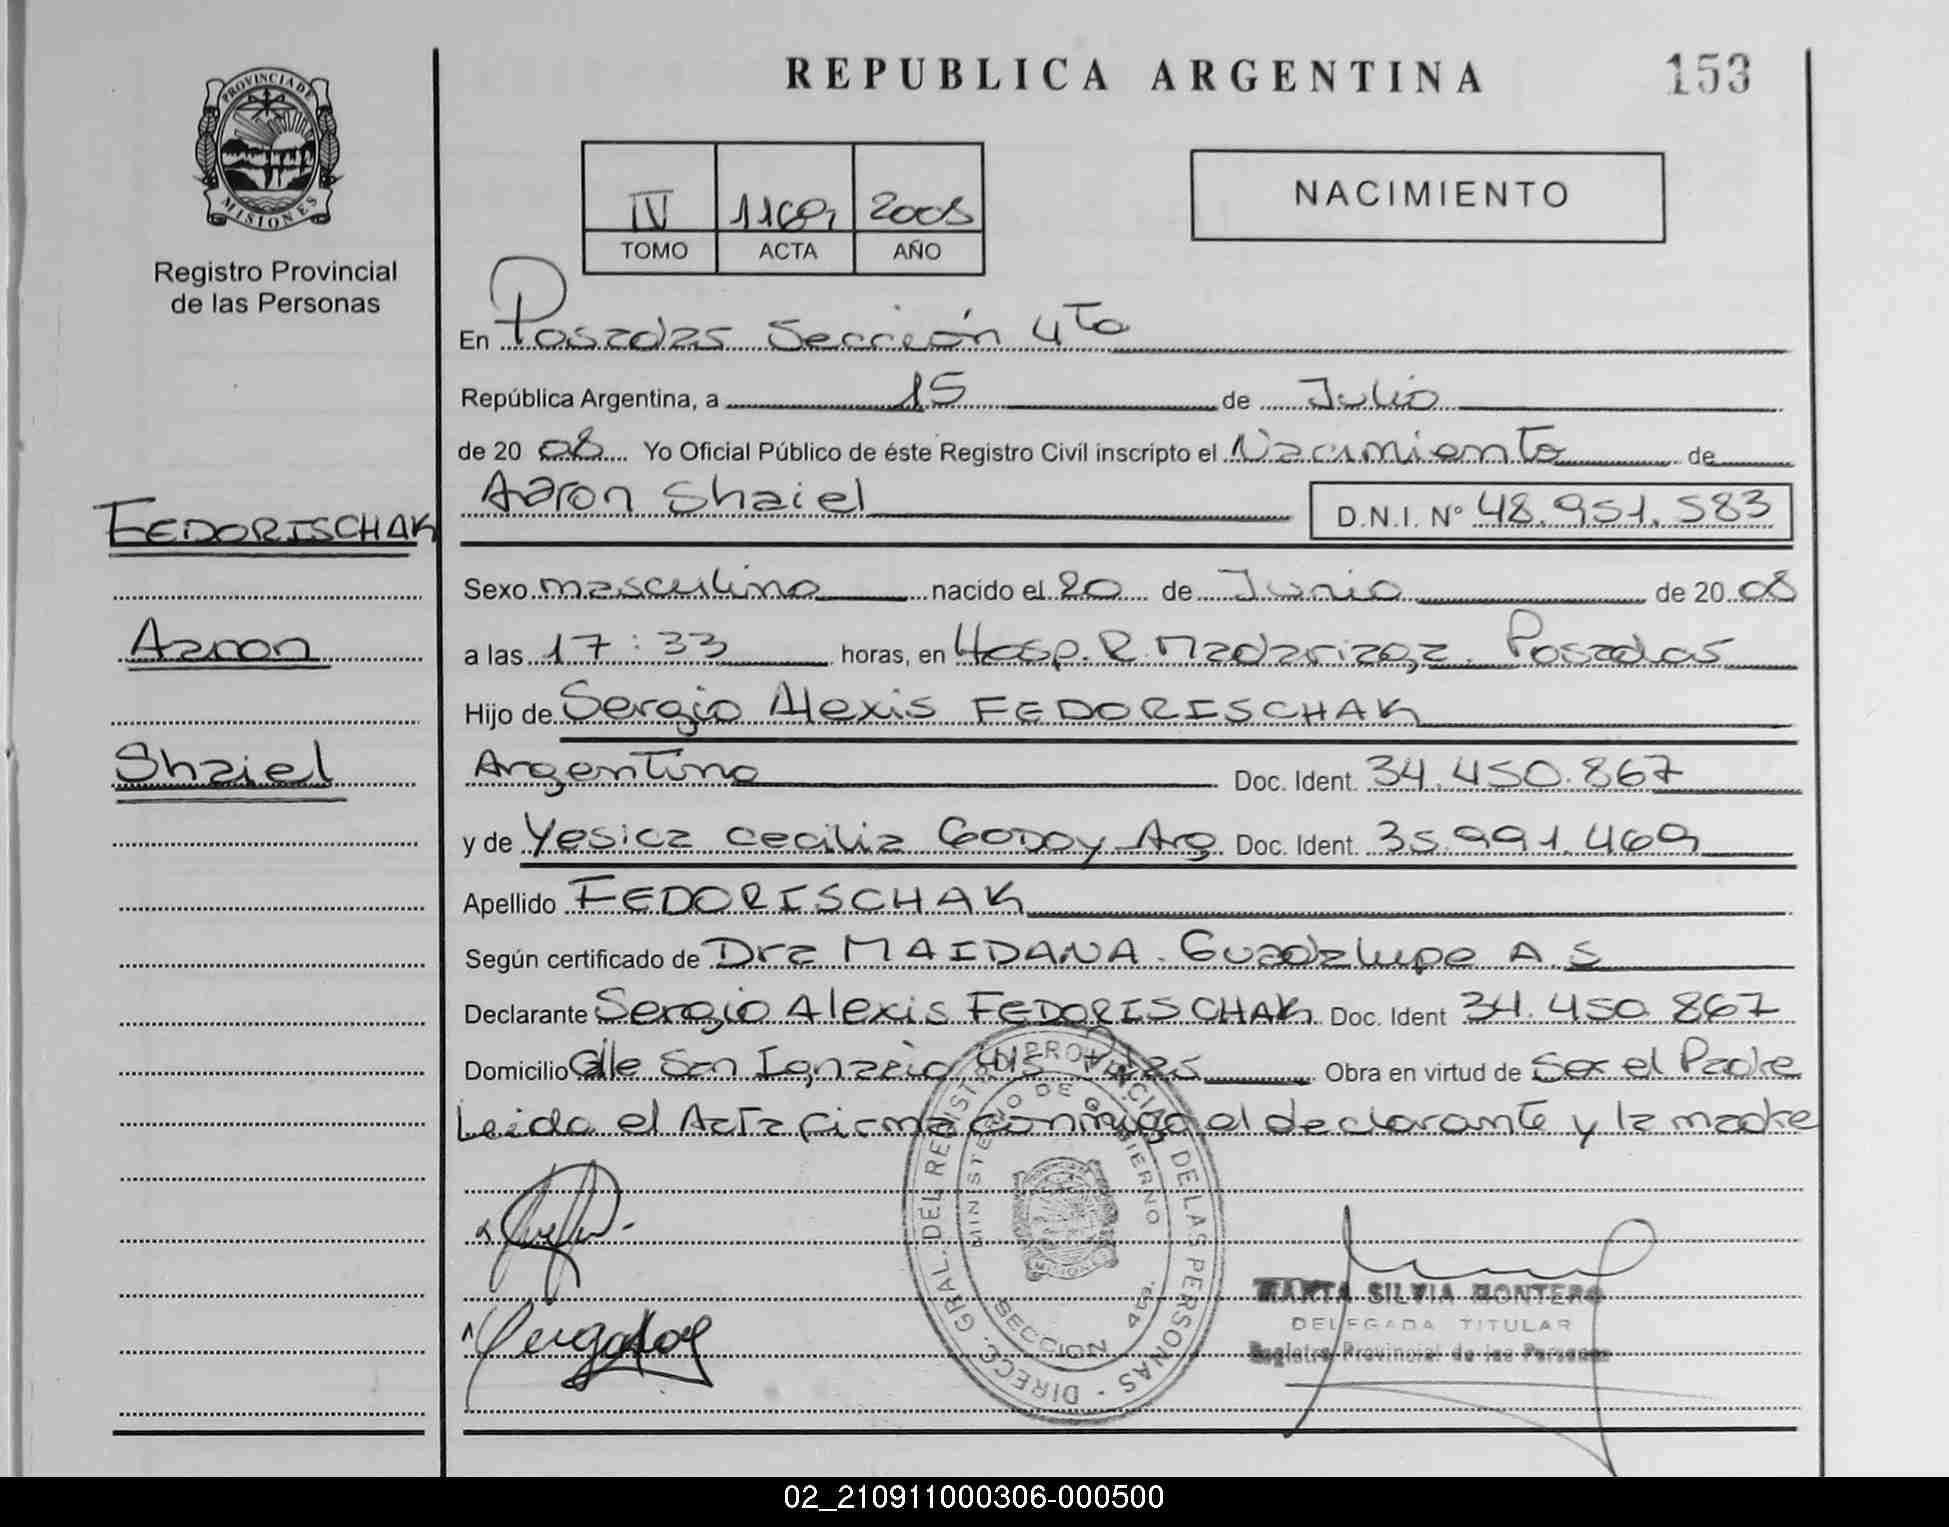 REPUBLICA ARGENTINA
153
PROVINCIA DE
MISIONES
Registro Provincial
de las Personas
IV 2008
TOMO ACTA AÑO
NACIMIENTO
En Posadas Sección 4ta
República Argentina, a 15 de Julio
de 20 08 Yo Oficial Público de éste Registro Civil inscripto el Nacimiento de
Aaron Shaiel D.N.I. N° 48.951.583
FEDORISCHAK
Aaron
Shaiel
Sexo masculino nacido el 20 de Junio de 20 08
a las 17:33 horas, en Hosp. R. Madariaga. Posadas
Hijo de Sergio Alexis FEDORISCHAK
Argentino Doc. Ident. 34.450.867
y de Yesica Cecilia GODOY Arg. Doc. Ident. 35.991.469
Apellido FEDORISCHAK
Según certificado de Dra MAIDANA. Guadalupe A.S
Declarante Sergio Alexis FEDORISCHAK Doc. Ident 34.450.867
Domicilio Calle San Ignacio Obra en virtud de Ser el Padre
Leida el Acta firma conmigo el declarante y la madre
DIRECC. GRAL. DEL REGISTRO PROVINCIAL DE LAS PERSONAS
MINISTERIO DE GOBIERNO
MISIONES
SECCION 4ta.
MARTA SILVIA MONTERO
DELEGADA TITULAR
Registro Provincial de las Personas
02_210911000306-000500